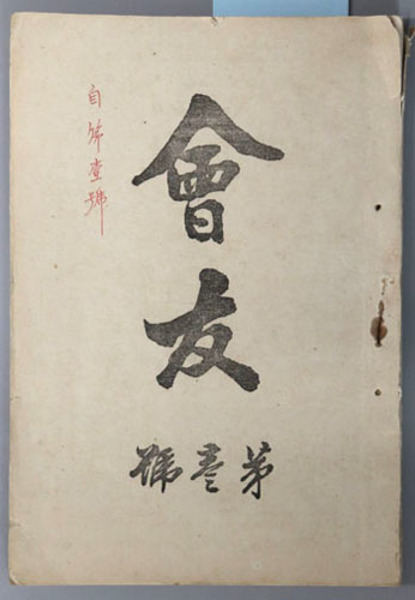 會友
第壹號
自第壹號